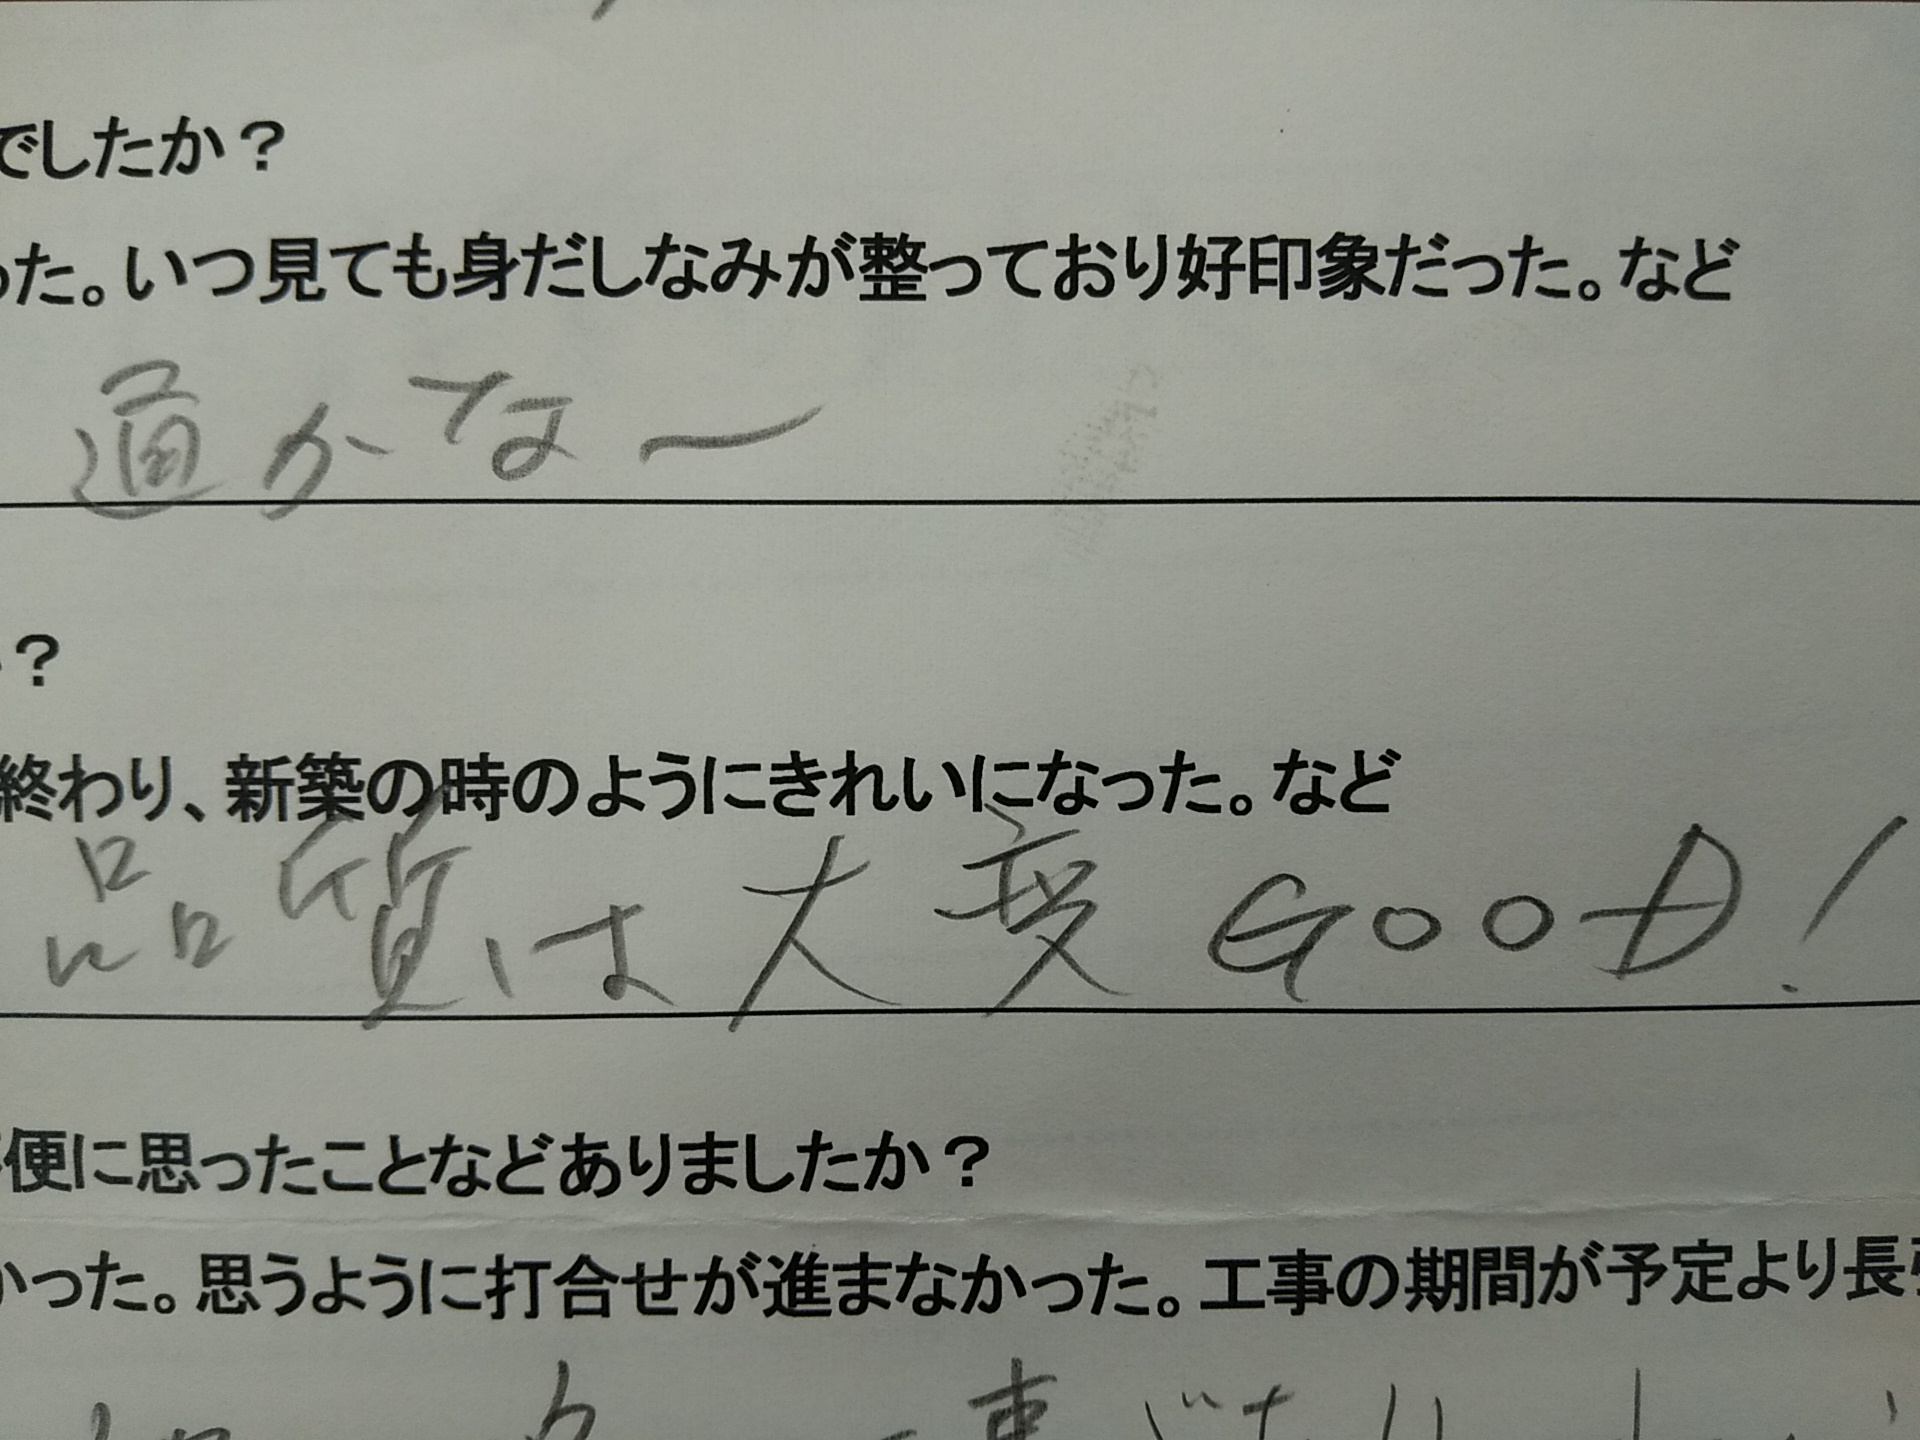 でしたか？
った。いつ見ても身だしなみが整っており好印象だった。など
通かなー
？
終わり、新築の時のようにきれいになった。など
品質は大変GOOD!
便に思ったことなどありましたか？
かった。思うように打合せが進まなかった。工事の期間が予定より長